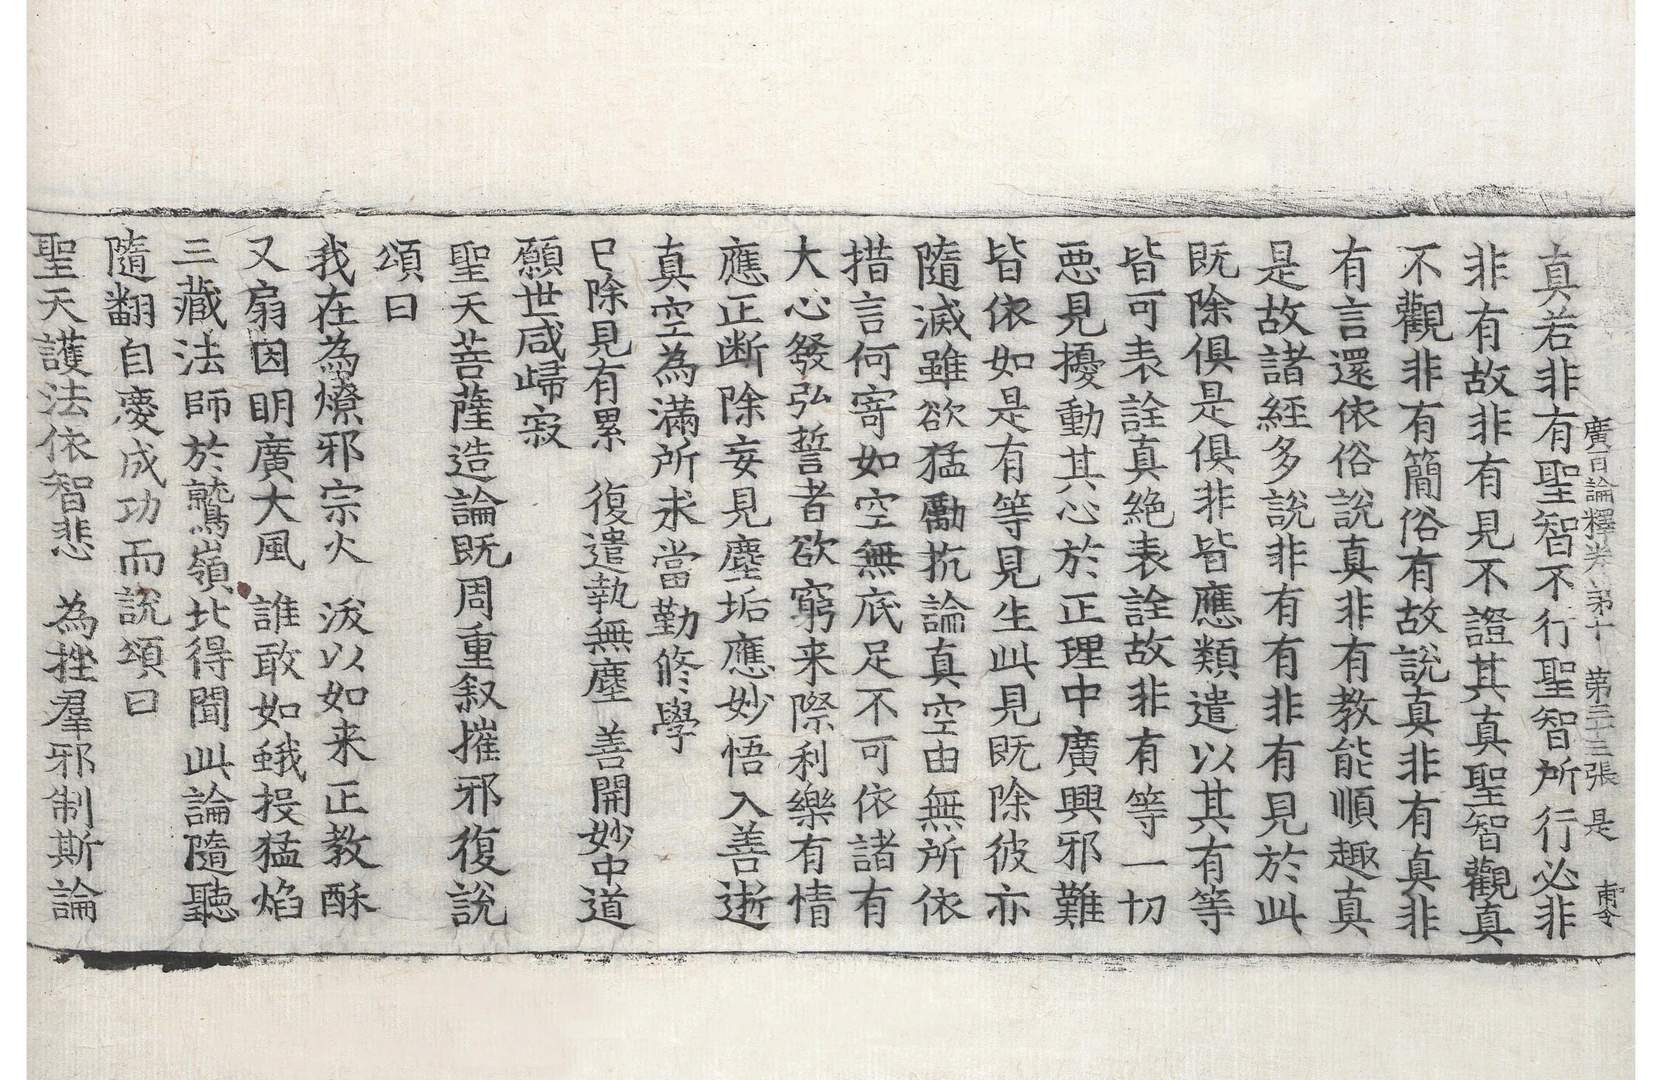 廣百論釋卷第十　第二十三張　是　甫令
真若非有聖智不行聖智所行必非
非有故非有見不證其真聖智觀真
不觀非有簡俗有故說真非有真非
有言還依俗說真非有教能順趣真
是故諸經多說非有有非有見於此
既除俱是俱非皆應類遣以其有等
皆可表詮真絶表詮故非有等一切
惡見擾動其心於正理中廣興邪難
皆依如是有等見生此見既除彼亦
隨滅雖欲猛勵抗論真空由無所依
措言何寄如空無底足不可依諸有
大心發弘誓者欲窮来際利樂有情
應正断除妄見塵垢應妙悟入善逝
真空為滿所求當勤修學
巳除見有累　復遣執無塵　善開妙中道
願世咸歸寂
聖天菩薩造論既周重叙摧邪復說
頌曰
我在為燎邪宗火　沷以如来正教酥
又扇因明廣大風　誰敢如蛾投猛焰
三藏法師於鷲嶺北得聞此論隨聽
隨翻自慶成功而說頌曰
聖天護法依智悲　為挫羣邪制斯論